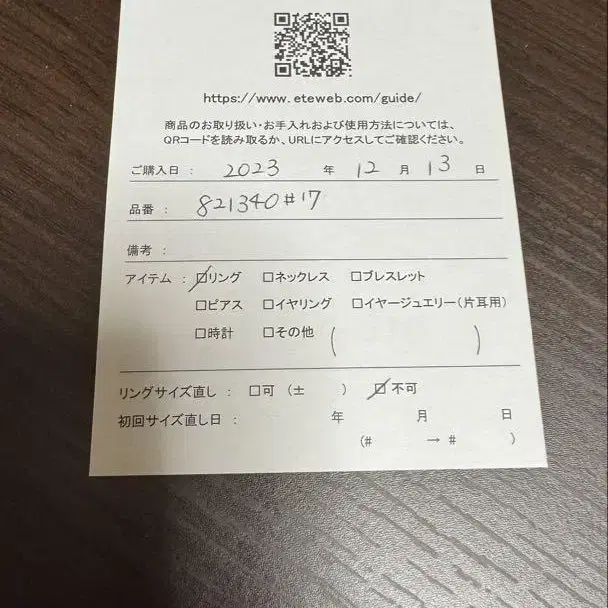 https://www.eteweb.com/guide/
商品のお取り扱い・お手入れおよび使用方法については、
QRコードを読み取るか、URLにアクセスしてご確認ください。
ご購入日 : 2023 年 12 月 13 日
品番 : 821340#17
備考 :
アイテム : □リング □ネックレス □ブレスレット
□ピアス □イヤリング □イヤージュエリー(片耳用)
□時計 □その他 ( )
リングサイズ直し : □可 (± ) □不可
初回サイズ直し日 : 年 月 日
(# → # )